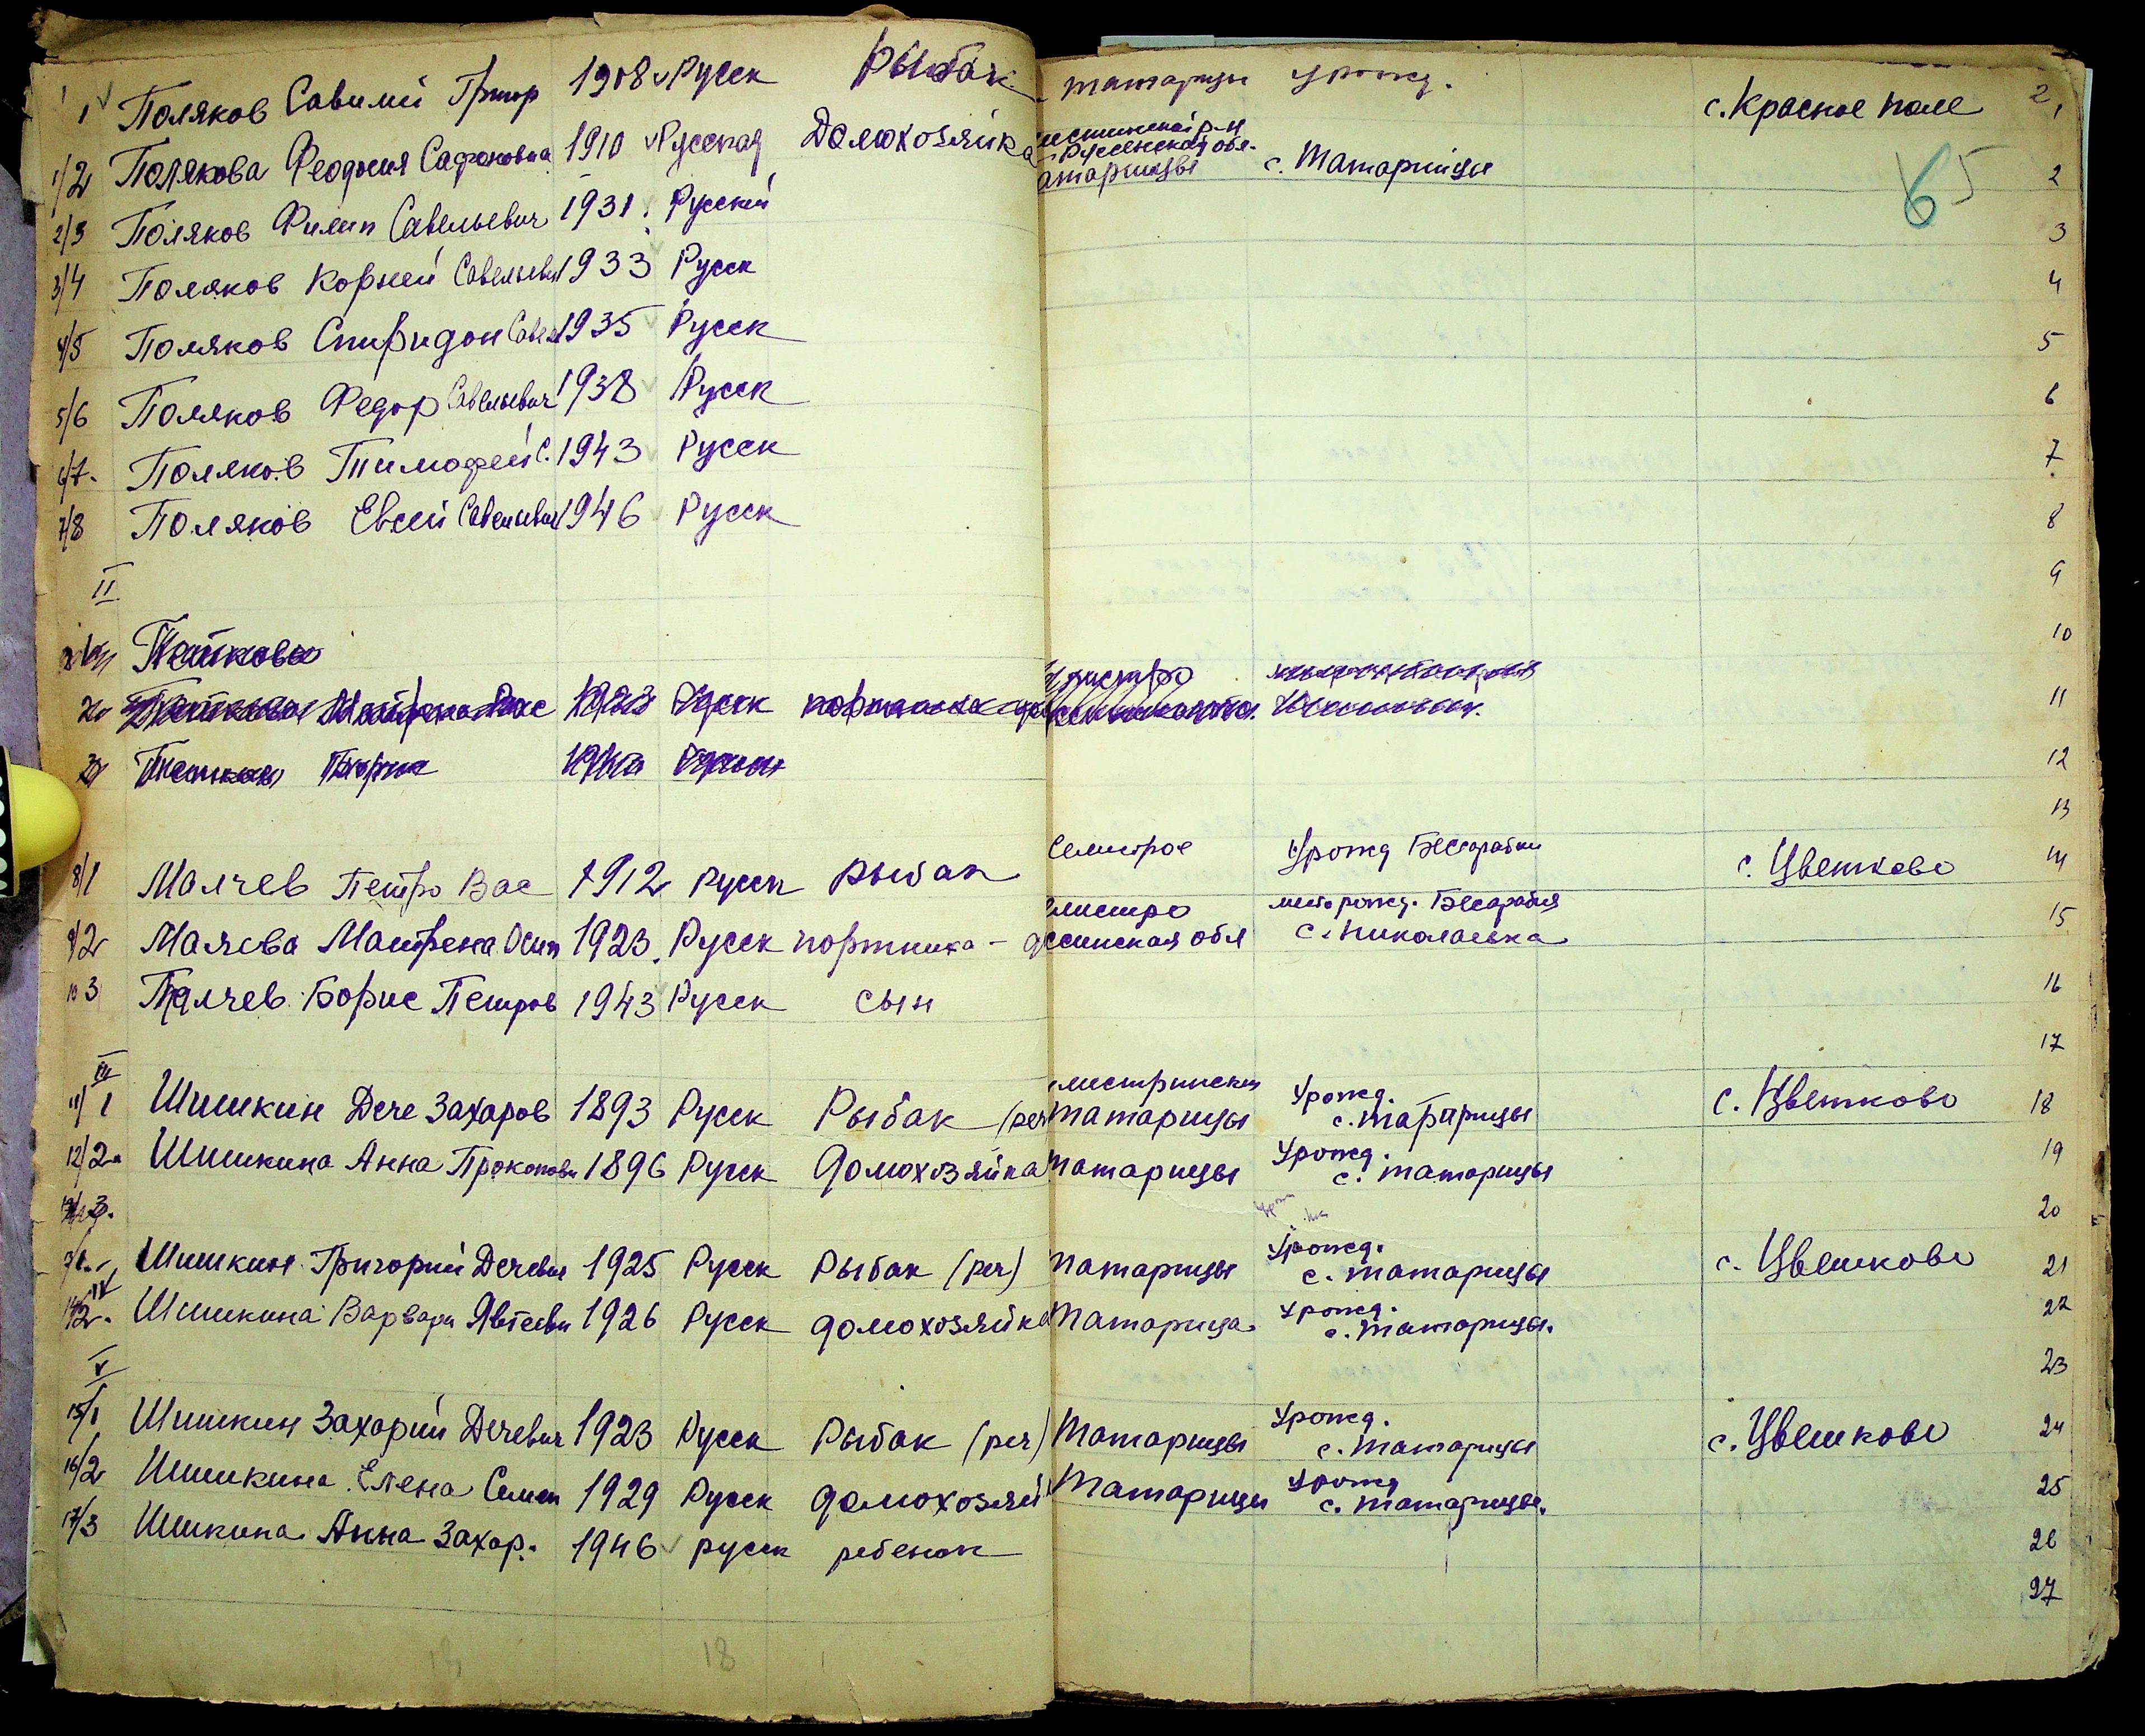 1 Поляков Савилий Григор 1908 Русск Рыбак Татарицы Урожд. с. Красное поле 2 1
1/2 Полякова Феодосия Сафоновна 1910 Русская Домохозяйка с. Татарицы 2
2/3 Поляков Филип Савельевич 1931 Русский 65 3
3/4 Поляков Корней Савельевич 1933 Русск 4
4/5 Поляков Спиридон Савел 1935 Русск 5
5/6 Поляков Федор Савельевич 1938 Русск 6
6/7. Поляков Тимофей С. 1943 Русск 7
7/8 Поляков Евсей Савельевич 1946 Русск 8
II 9
10
11
12
13
8/1 Малчев Петро Вас 1912 Русск Рыбак Силистрое Урожд Бессарабии с. Цветково 14
9/2 Малчева Матрена Осип 1923 Русск портниха - 15
с. Николаевка
10 3 Малчев Борис Петров 1943 Русск сын 16
17
III
11/1 Шишкин Дече Захаров 1893 Русск Рыбак (реч Татарицы Урожд. с. Татарицы с. Цветково 18
12/2. Шишкина Анна Прокопови 1896 Русск домохозяйка Татарицы Урожд. с. Татарицы 19
20
Шишкин Григорий Дечевич 1925 Русск Рыбак (реч) Татарицы Урожд. с. Татарицы с. Цветково 21
IV
14/2. Шишкина Варвара Явтееви 1926 Русск домохозяйка Татарица Урожд. с. Татарицы. 22
V 23
15/1 Шишкин Захарий Дечевич 1923 Русск Рыбак (реч) Татарицы Урожд. с. Татарицы с. Цветково 24
16/2 Шишкина Елена Семен 1929 Русск домохозяй Татарицы Урожд с. Татарицы. 25
17/3 Шишкина Анна Захар. 1946 русск ребенок 26
27
18